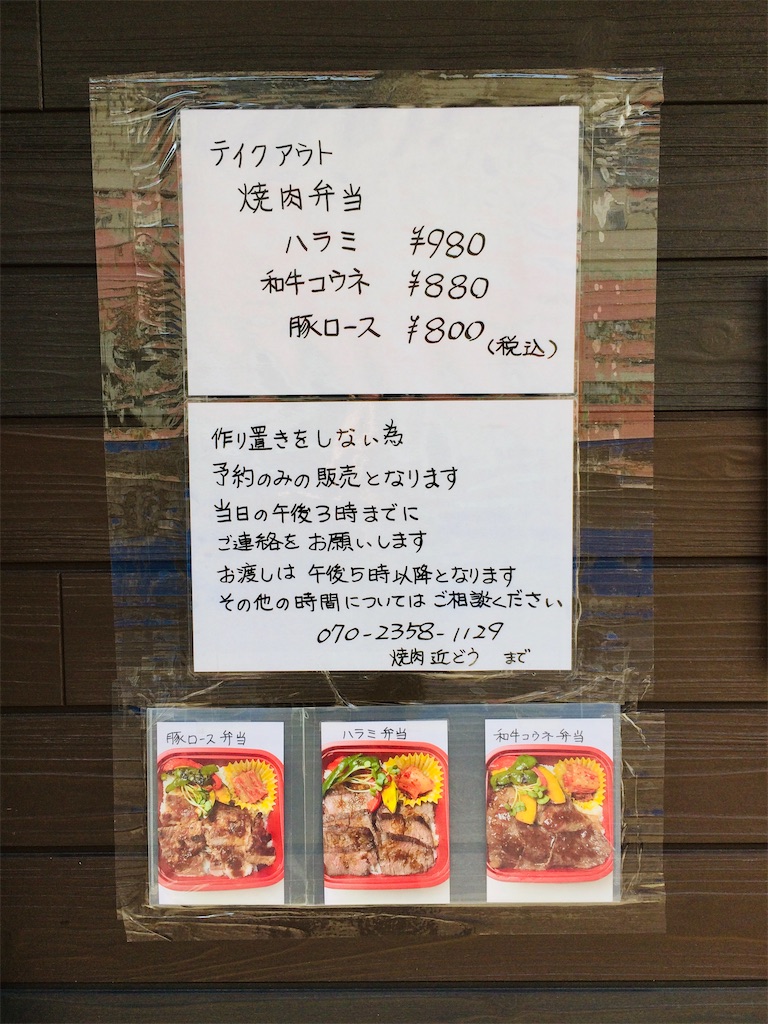 テイクアウト
焼肉弁当
ハラミ ¥980
和牛コウネ ¥880
豚ロース ¥800
(税込)
作り置きをしない為
予約のみの販売となります
当日の午後3時までに
ご連絡をお願いします
お渡しは午後5時以降となります
その他の時間についてはご相談ください
070-2358-1129
焼肉 近どう まで
豚ロース弁当
ハラミ弁当
和牛コウネ弁当